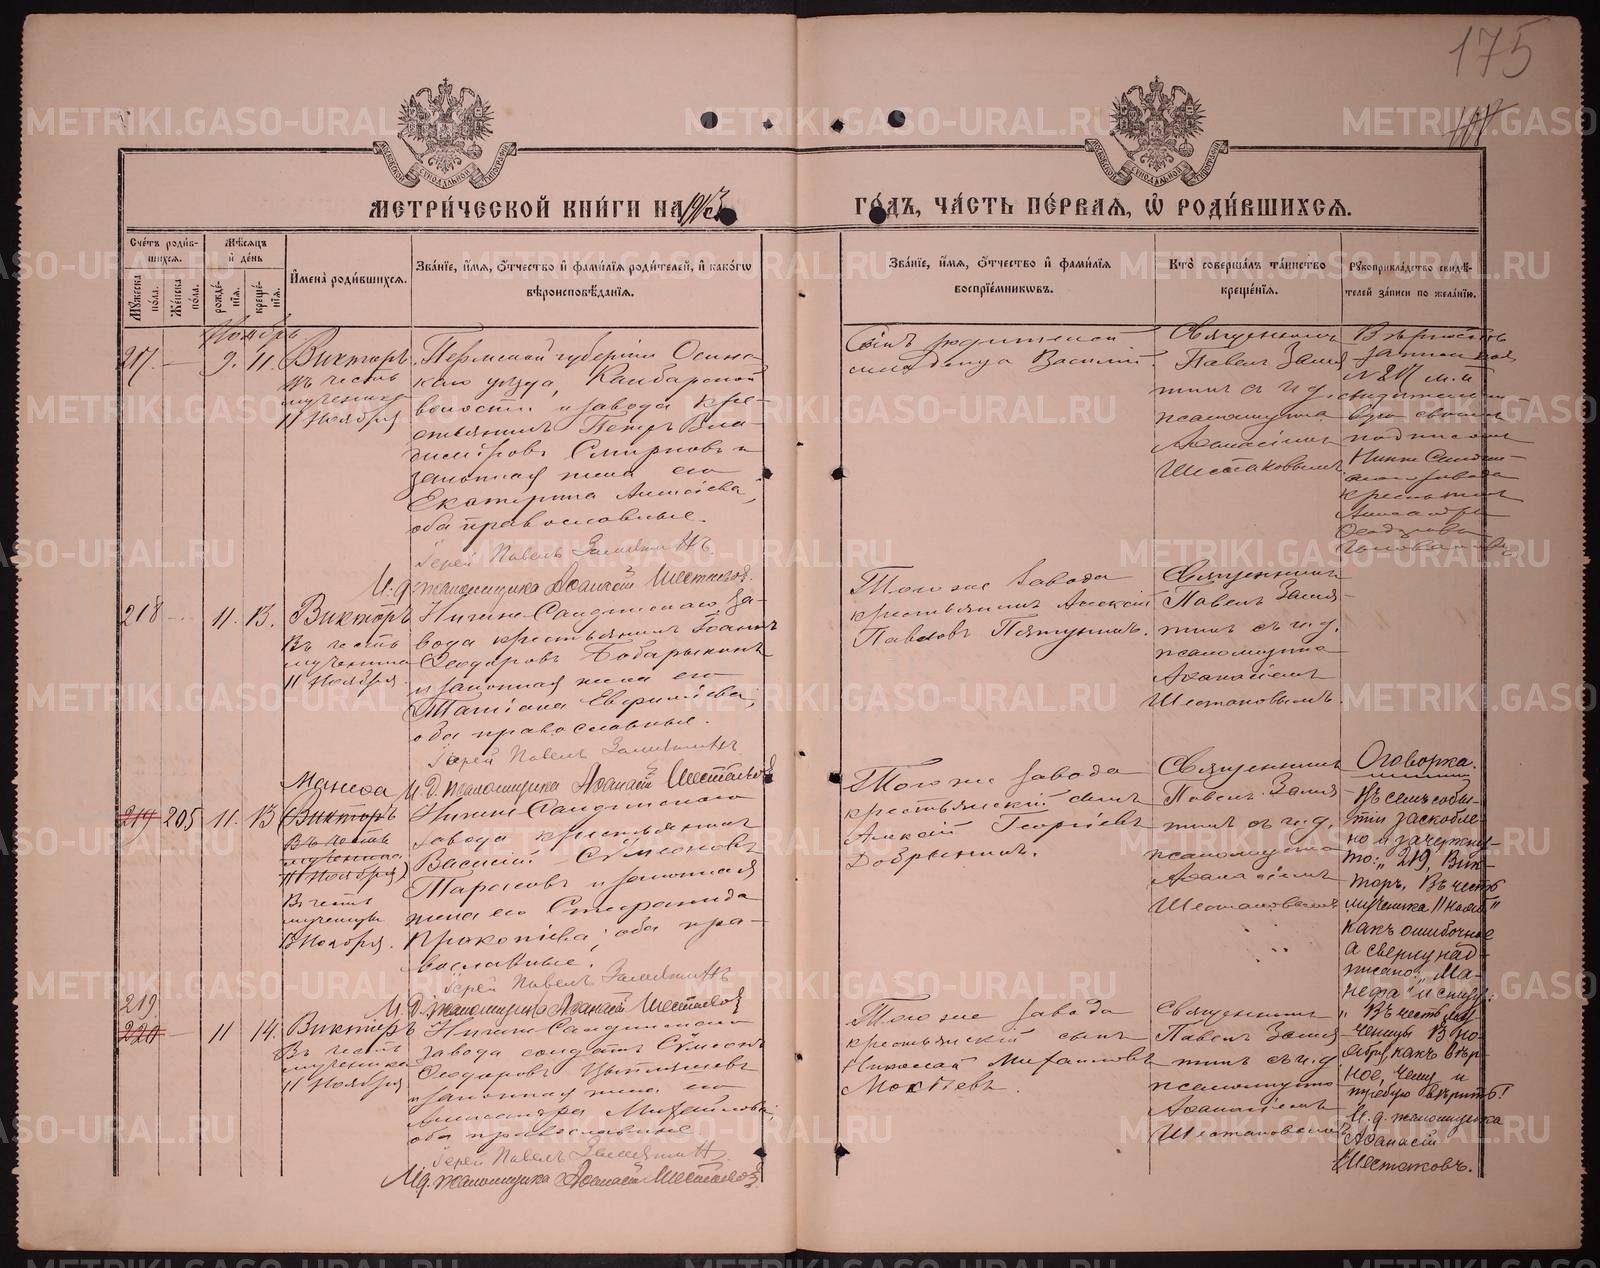 175
МЕТРИ́ЧЕСКОЙ КНИ́ГИ НА 1913
ГО́ДЪ, ЧА́СТЬ ПЕ́РВАЯ, Ѡ РОДИ́ВШИХСЯ.
Сче́тъ роди́в-
шихся.
Му́жеска
по́ла.
Же́нска
по́ла.
Мѣ́сяцъ
и҆ де́нь
рожде́-
нїя.
креще́-
нїя.
И҆мена̀ роди́вшихся.
Зва́нїе, и҆́мя, ѻ҆́тчество и҆ фами́лїя роди́телей, и҆ како́гѡ
вѣроисповѣ́данїя.
Зва́нїе, и҆́мя, ѻ҆́тчество и҆ фами́лїя
воспрїе́мникѡвъ.
Кто̀ соверша́лъ та́инство
креще́нїя.
Рꙋкоприкла́дство свидѣ́-
телей за́писи по жела́нїю.
Ноябрь
217. — 9. 11. Викторъ
въ честь
мученика
11 Ноября
Пермской губернiи Осин-
каго уѣзда, Камбарской
волости и завода кре-
стьянинъ Петръ Вла-
димiровъ Смирновъ и
законная жена его
Екатерина Алексiева,
оба православные.
Iерей Павелъ Замятинъ
И. д. псаломщика Афанасiй Шестаковъ.
Сынъ родителей
младенца Василiй.
Священникъ
Павелъ Замя-
тинъ съ и. д.
псаломщика
Афанасiемъ
Шестаковымъ.
Вѣрность
записи
№ 217 м. п.
подписомъ
Нижне Салдин-
скаго завода
крестьянинъ
218 — 11. 13. Викторъ
Въ честь
мученика
11 Ноября
Нижне-Салдинскаго за-
вода крестьянинъ Iоаннъ
Ѳеодоровъ Бобарыкинъ
и законная жена его
Татiана Евфимiева,
оба православные.
Iерей Павелъ Замятинъ
И. д. псаломщика Афанасiй Шестаковъ
Того же завода
крестьянинъ Алексiй
Павловъ Пятунинъ.
Священникъ
Павелъ Замя-
тинъ съ и. д.
псаломщика
Афанасiемъ
Шестаковымъ.
219 205 11. 13
Манефа
(Викторъ
Въ честь
мученика
11 Ноября)
Въ честь
мученицы
13 Ноября.
Нижне-Салдинскаго
завода крестьянинъ
Василiй Сѵмеоновъ
Тарасовъ и законная
жена его Стефанида
Прокопiева, оба пра-
вославные.
Iерей Павелъ Замятинъ
И. д. псаломщика Афанасiй Шестаковъ
Того же завода
крестьянскiй сынъ
Алексiй Георгiевъ
Добрынинъ.
Священникъ
Павелъ Замя-
тинъ съ и. д.
псаломщика
Афанасiемъ
Шестаковымъ
Оговорка.
Въ семъ собы-
тiи заскобле-
но и зачеркну-
то: „219, Вик-
торъ, Въ честь
мученика 11 нояб"
какъ ошибочное
а сверху над-
писано: „Ма-
нефа" и снизу:
„Въ честь му-
ченицы 13 но-
ября, какъ вѣр-
ное, чему и
требую вѣрить!
И. д. псаломщика
Афанасiй
Шестаковъ.
219.
220 — 11 14. Викторъ
Въ честь
мученика
11 Ноября
Нижне-Салдинскаго
завода солдатъ Сѵмеонъ
Ѳеодоровъ
и законная жена его
Александра Михайлова,
оба православные
Iерей Павелъ Замятинъ.
И. д. псаломщика Афанасiй Шестаковъ
Того же завода
крестьянскiй сынъ
Николай Михаиловъ
Мокѣевъ.
Священникъ
Павелъ Замя-
тинъ съ и. д.
псаломщика
Афанасiемъ
Шестаковымъ
METRIKI.GASO-URAL.RU